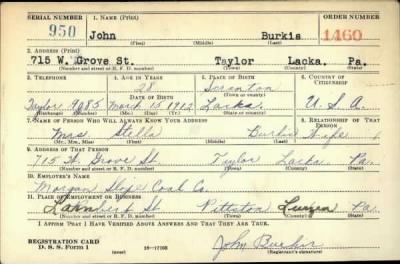 SERIAL NUMBER 1. NAME (Print) ORDER NUMBER
950 John Burkis 1460
(First) (Middle) (Last)
2. ADDRESS (Print)
715 W. Grove St. Taylor Lacka. Pa.
(Number and street or R. F. D. number) (Town) (County) (State)
3. TELEPHONE 4. AGE IN YEARS 5. PLACE OF BIRTH 6. COUNTRY OF CITIZENSHIP
28 Scranton
DATE OF BIRTH (Town or county)
Taylor 9085 March 15 1912 Lacka. U.S.A.
(Exchange) (Number) (Mo.) (Day) (Yr.) (State or country)
7. NAME OF PERSON WHO WILL ALWAYS KNOW YOUR ADDRESS 8. RELATIONSHIP OF THAT PERSON
Mrs. Stella Burkis Wife
(Mr., Mrs., Miss) (First) (Middle) (Last)
9. ADDRESS OF THAT PERSON
715 W. Grove St. Taylor Lacka Pa.
(Number and street or R. F. D. number) (Town) (County) (State)
10. EMPLOYER'S NAME
Morgan Slope Coal Co.
11. PLACE OF EMPLOYMENT OR BUSINESS
Lambert St Pittston Luzern Pa
(Number and street or R. F. D. number) (Town) (County) (State)
I AFFIRM THAT I HAVE VERIFIED ABOVE ANSWERS AND THAT THEY ARE TRUE.
REGISTRATION CARD
D. S. S. Form 1 (over) 16—17105 John
(Registrant's signature)